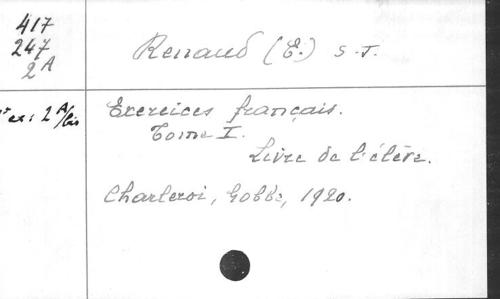 417
247
2 A
Renaud (E.) S.J.
ex: 2 A/bis
Exercices français.
Tome I.
Livre de l'élève.
Charleroi, Gobbe, 1920.